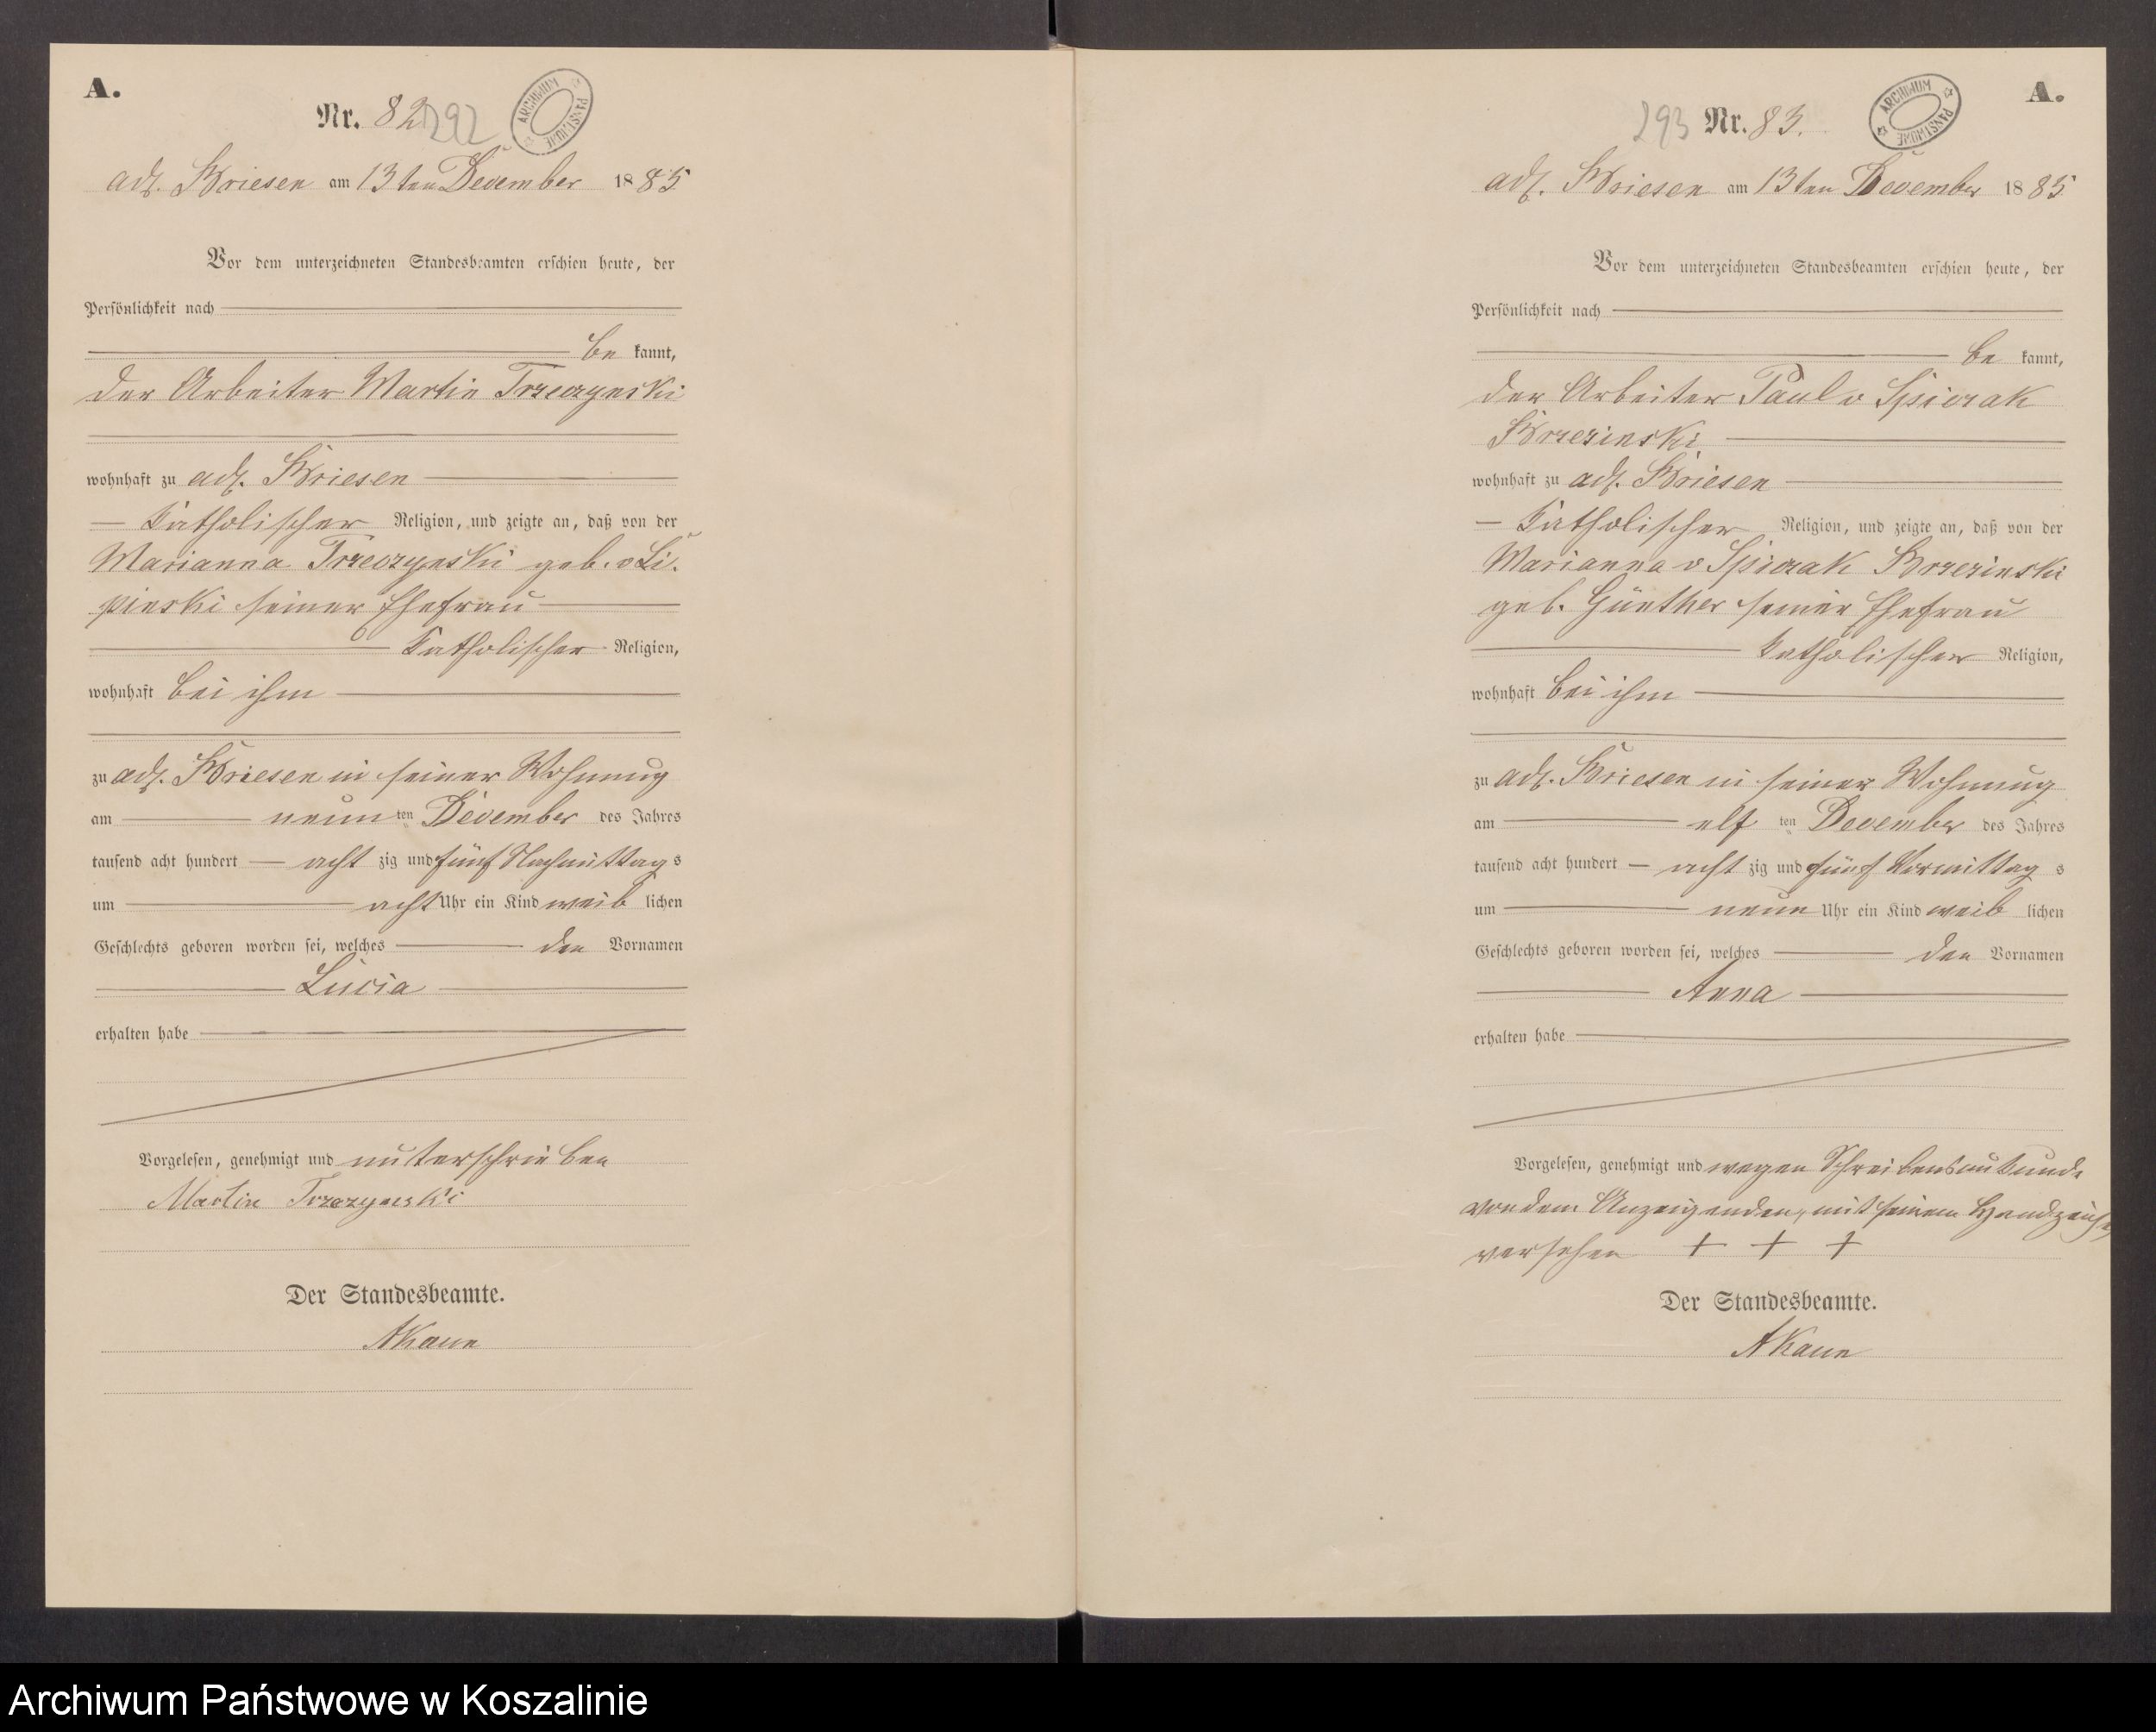 A.
Nr. 82
292
ARCHIWUM PAŃSTWOWE
adl. Briesen am 13ten December 1885
Vor dem unterzeichneten Standesbeamten erschien heute, der
Persönlichkeit nach
be kannt,
der Arbeiter Martin Trzeczynski
wohnhaft zu adl. Briesen
katholischer Religion, und zeigte an, daß von der
Marianna Trzeczynski geb. v Li-
pinski seiner Ehefrau
katholischer Religion,
wohnhaft bei ihm
zu adl. Briesen in seiner Wohnung
am neun ten December des Jahres
tausend acht hundert acht zig und fünf Nachmittag s
um acht Uhr ein Kind weib lichen
Geschlechts geboren worden sei, welches den Vornamen
Lucia
erhalten habe
Vorgelesen, genehmigt und unterschrieben
Martin Trzezynski
Der Standesbeamte.
AKaun
A.
293
Nr. 83.
ARCHIWUM PAŃSTWOWE
adl. Briesen am 13ten December 1885
Vor dem unterzeichneten Standesbeamten erschien heute, der
Persönlichkeit nach
be kannt,
der Arbeiter Paul v Spiczak
Brzezinski
wohnhaft zu adl. Briesen
katholischer Religion, und zeigte an, daß von der
Marianna v Spiczak Brzezinski
geb. Günther seiner Ehefrau
katholischer Religion,
wohnhaft bei ihm
zu adl. Briesen in seiner Wohnung
am elf ten December des Jahres
tausend acht hundert acht zig und fünf Vormittag s
um neun Uhr ein Kind weib lichen
Geschlechts geboren worden sei, welches den Vornamen
Anna
erhalten habe
Vorgelesen, genehmigt und wegen Schreibensunkunde
von dem Anzeigenden, mit seinem Handzeichen
versehen + + +
Der Standesbeamte.
AKaun
Archiwum Państwowe w Koszalinie